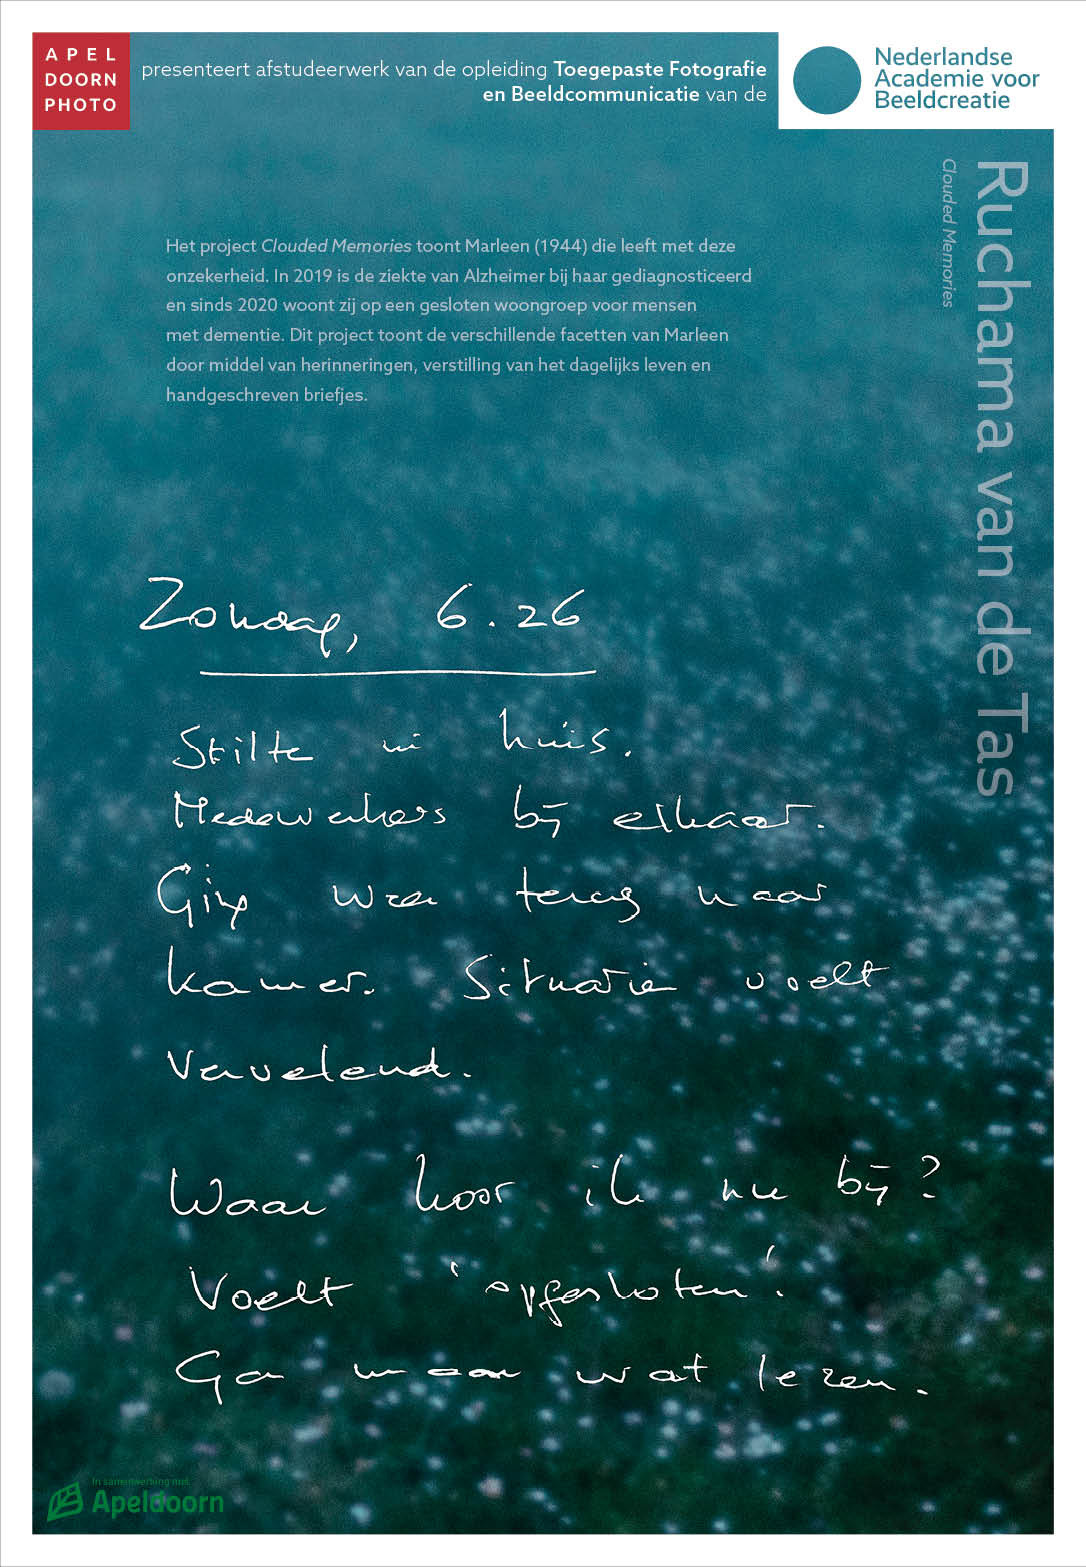 APEL
DOORN
PHOTO
presenteert afstudeerwerk van de opleiding Toegepaste Fotografie
en Beeldcommunicatie van de
Nederlandse
Academie voor
Beeldcreatie
Ruchama van de Tas
Clouded Memories
Het project Clouded Memories toont Marleen (1944) die leeft met deze
onzekerheid. In 2019 is de ziekte van Alzheimer bij haar gediagnosticeerd
en sinds 2020 woont zij op een gesloten woongroep voor mensen
met dementie. Dit project toont de verschillende facetten van Marleen
door middel van herinneringen, verstilling van het dagelijks leven en
handgeschreven briefjes.
Zondag, 6.26
Stilte in huis.
Medewerkers bij elkaar.
Ging weer terug naar
kamer. Situatie voelt
vervelend.
Waar hoor ik nu bij?
Voelt 'opgesloten'.
Ga maar wat lezen.
In samenwerking met
Apeldoorn